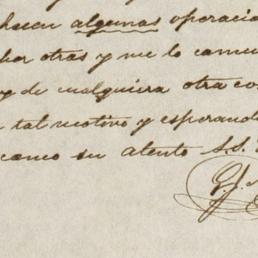 hacen algunas operacio
por otras y me lo comu
y de cualquiera otra co
tal motivo y esperando
como su atento S.S.